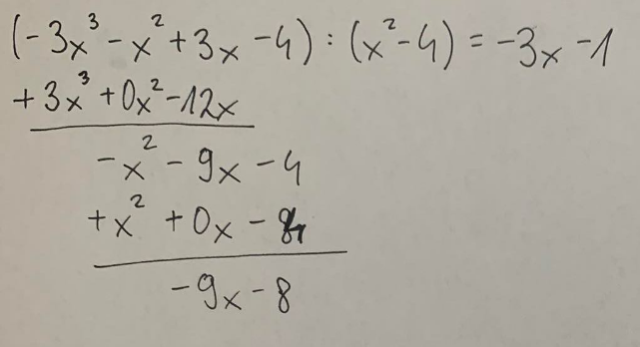 (-3x³ - x² + 3x - 4) : (x² - 4) = -3x - 1
+ 3x³ + 0x² - 12x
- x² - 9x - 4
+ x² + 0x - 4
- 9x - 8